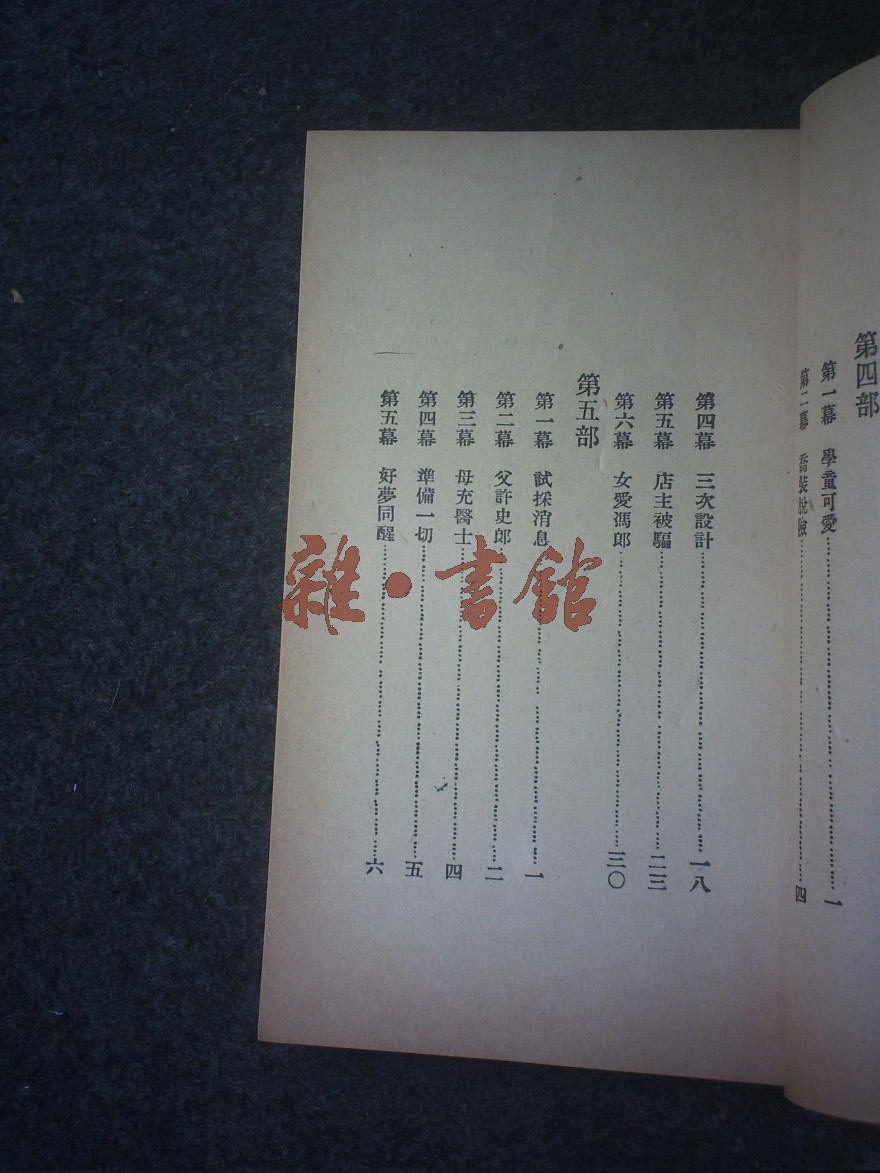 第四部
第一幕 學童可愛 一
第二幕 喬裝脫險 四
第四幕 三次設計 一八
第五幕 店主被騙 二三
第六幕 女愛馮郎 三〇
第五部
第一幕 試探消息 一
第二幕 父許史郎 二
第三幕 母充醫士 四
第四幕 準備一切 五
第五幕 好夢同醒 六
雜·書館